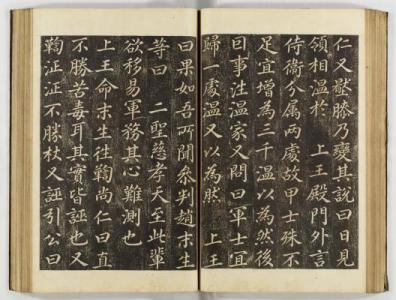 仁又嶽膝乃變其説曰日見
領相溫於　上王殿門外言
侍衞分属兩處故甲士殊不
足宜增為三千溫以為然後
曰事注溫家又問曰軍士宜
歸一處溫又以為然　上王
曰果如吾所聞叅判趙末生
等曰　二聖慈孝天至此輩
欲移易軍務其心難測也
上王命末生往鞫尚仁曰直
不勝苦毒耳其實皆誣也又
鞫沚沚不勝杖又誣引公曰